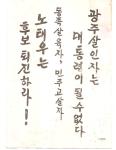 광주살인자는
대통령이 될 수 없다
동족살육자, 민주교살자
노태우는
후보 퇴진하라!